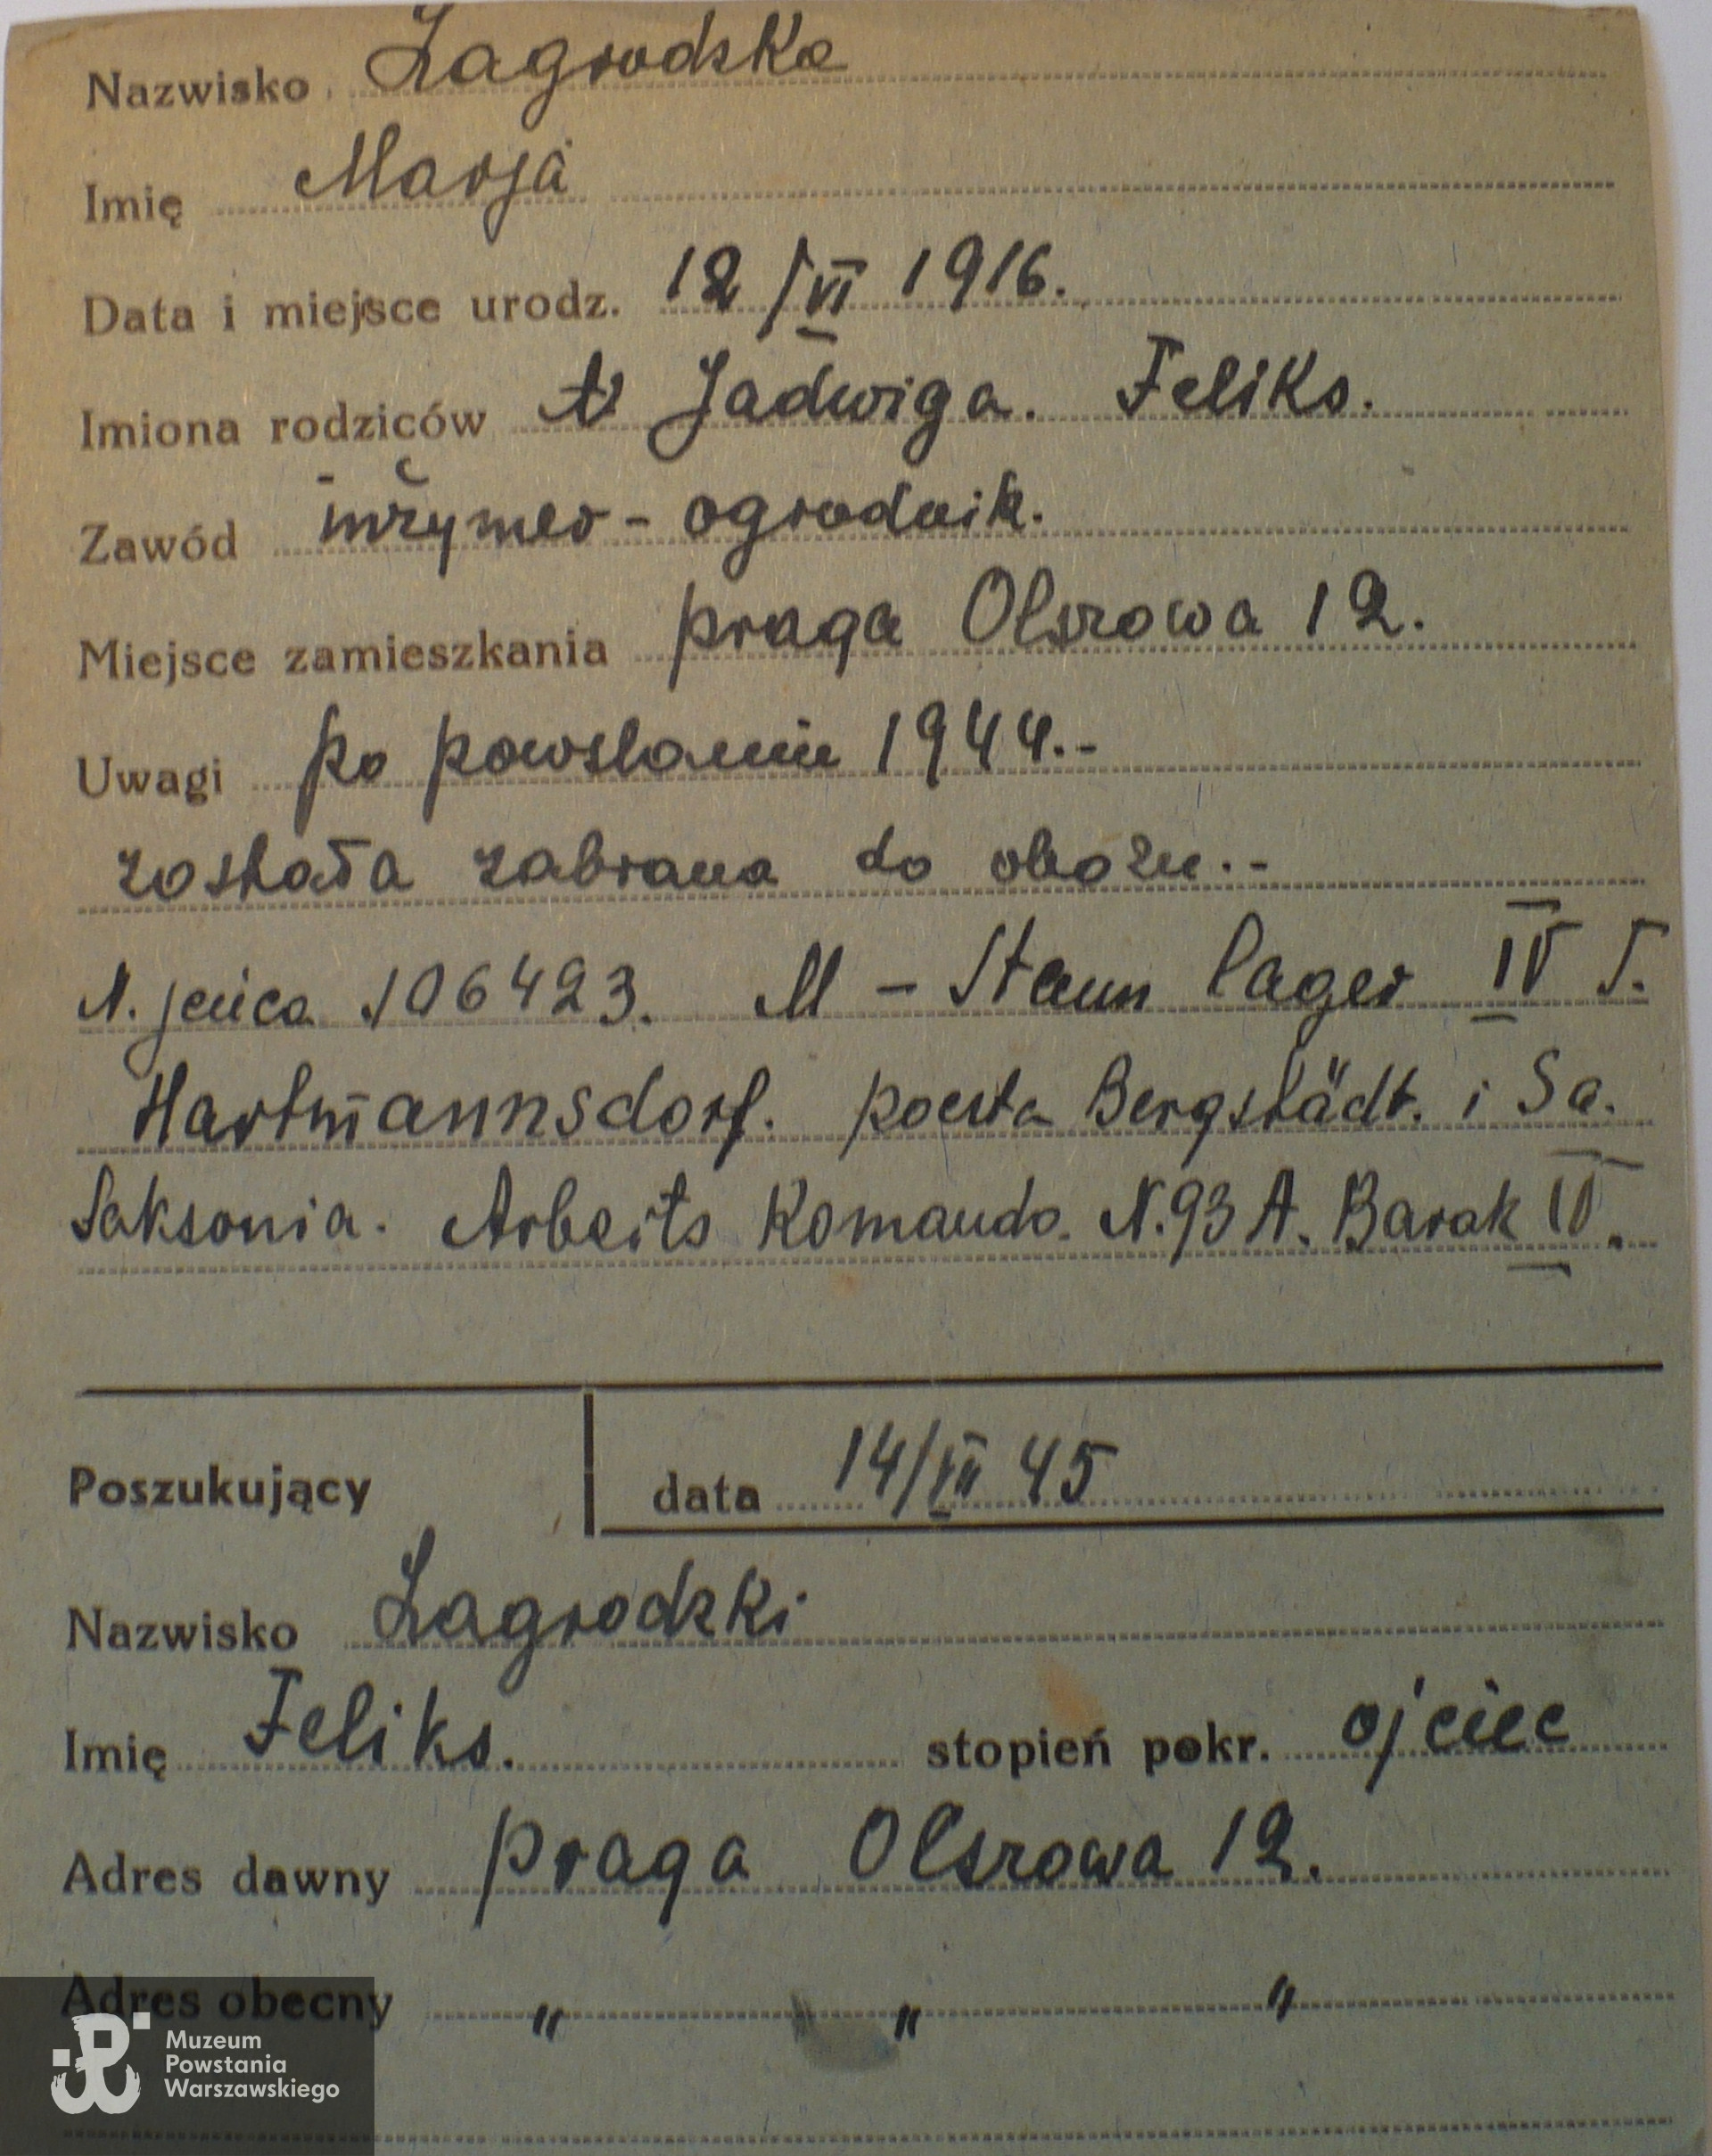 Nazwisko Łagrodska
Imię Marja
Data i miejsce urodz. 12/VI 1916.
Imiona rodziców Jadwiga. Feliks.
Zawód inżynier - ogrodnik.
Miejsce zamieszkania praga Olszowa 12.
Uwagi po powstaniu 1944.-
została zabrana do obozu.-
N. jeńca 106423. M - Stamm lager IV
Hartmannsdorf. poczta Bergstädt. i Sa.
Saksonia. Arbeits Komando. N. 93 A. Barak IV.
Poszukujący data 14/VII 45
Nazwisko Łagrodzki
Imię Feliks. stopień pokr. ojciec
Adres dawny praga Olszowa 12.
Adres obecny " " "
Muzeum
Powstania
Warszawskiego